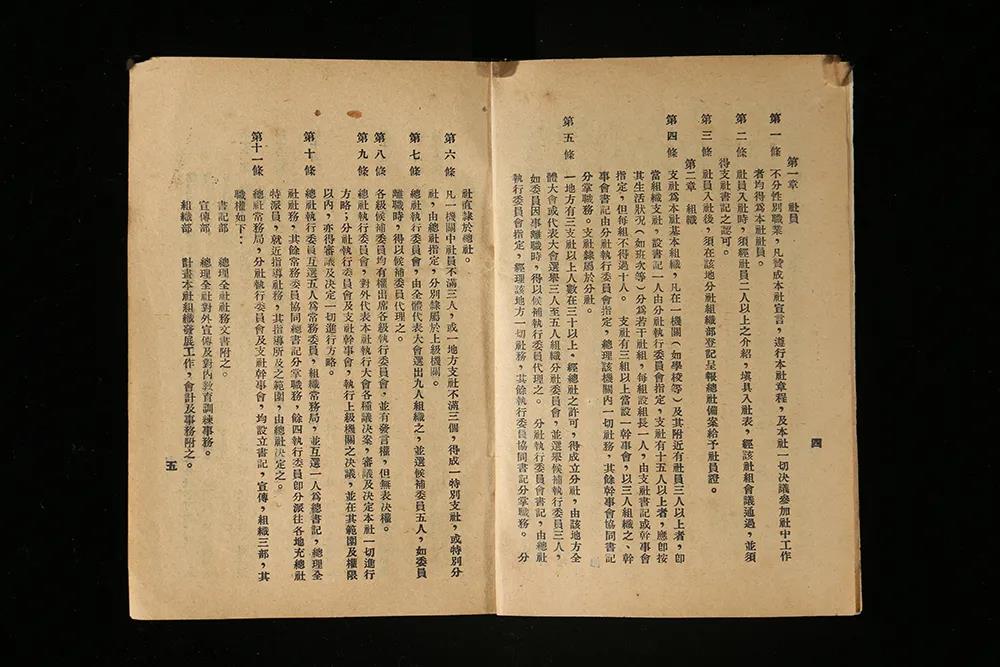 第一章　社員
第一條　不分性別職業，凡贊成本社宣言，遵行本社章程，及本社一切決議參加社中工作
者均得爲本社社員。
第二條　社員入社時，須經社員二人以上之介紹，塡具入社表，經該社組會議通過，並須
得支社書記之認可。
第三條　社員入社後，須在該地分社組織部登記呈報總社備案給予社員證。
第二章　組織
第四條　支社爲本社基本組織，凡在一機關（如學校等）及其附近有社員三人以上者，卽
當組織支社，設書記一人由分社執行委員會指定，支社有十五人以上者，應卽按
其生活狀况（如班次等）分爲若干社組，每組設組長一人，由支社書記或幹事會
指定，但每組不得過十人。　支社有三組以上當設一幹事會，以三人組織之、幹
事會書記由分社執行委員會指定，總理該機關內一切社務，其餘幹事會協同書記
分掌職務。支社隸屬於分社。
第五條　一地方有三支社以上人數在三十以上，經總社之許可，得成立分社，由該地方全
體大會或代表大會選舉三人至五人組織分社委員會，並選舉候補執行委員三人，
如委員因事離職時，得以候補執行委員代理之。　分社執行委員會書記，由總社
執行委員會指定，經理該地方一切社務，其餘執行委員協同書記分掌職務。　分
四
社直隸於總社。
第六條　凡一機關中社員不滿三人，或一地方支社不滿三個，得成一特別支社，或特別分
社，由總社指定，分別隸屬於上級機關。
第七條　總社執行委員會，由全體代表大會選出九人組織之，並選候補委員五人，如委員
離職時，得以候補委員代理之。
第八條　各級候補委員均有權出席各級執行委員會，並有發言權，但無表决權。
第九條　總社執行委員會，對外代表本社執行大會各種議決案，審議及決定本社一切進行
方略；分社執行委員會及支社幹事會，執行上級機關之决議，並在其範圍及權限
以內，亦得審議及决定一切進行方略。
第十條　總社執行委員互選五人爲常務委員，組織常務局，並互選一人爲總書記，總理全
社社務，其餘常務委員協同總書記分掌職務，餘四執行委員卽分派往各地充總社
特派員，就近指導社務，其指導所及之範圍，由總社決定之。
第十一條　總社常務局，分社執行委員會及支社幹事會，均設立書記，宣傳，組織三部，其
職權如下：
書記部　總理全社社務文書附之。
宣傳部　總理全社對外宣傳及對內教育訓練事務。
組織部　計畫本社組織發展工作，會計及事務附之。
五